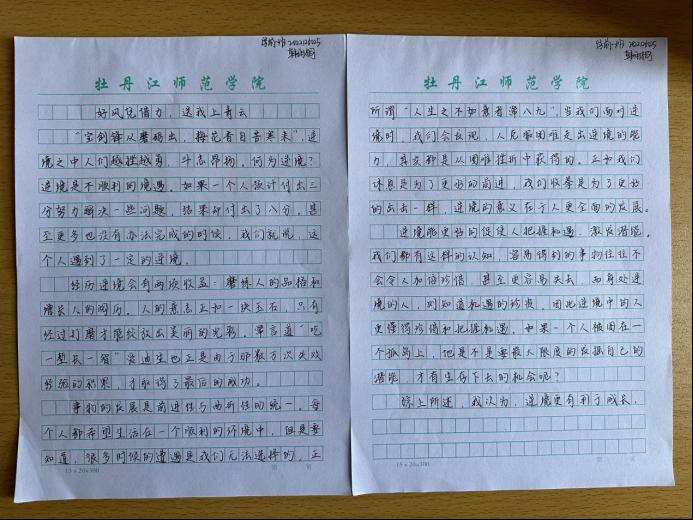 学前一班 2022121025
牡丹江师范学院
好风凭借力，送我上青云
“宝剑锋从磨砺出，梅花香自苦寒来”，逆
境之中人们越挫越勇，斗志昂扬。何为逆境？
逆境是不顺利的境遇。如果一个人预计付出三
分努力解决一些问题，结果却付出了八分，甚
至更多也没有办法完成的时候，我们就说，这
个人遇到了一定的逆境。
经历逆境会有两项收益：磨练人的品格和
增长人的阅历。人的意志正如一块玉石，只有
经过打磨才能绽放出美丽的光彩，常言道“吃
一堑长一智”爱迪生也正是由于那数万次失败
经验的积累，才取得了最后的成功。
事物的发展是前进性与曲折性的统一，每
个人都希望生活在一个顺利的环境中，但是要
知道，很多时候的遭遇是我们无法选择的。正
15×20=300
第 页
学前一班
牡丹江师范学院
所谓“人生之不如意者常八九”，当我们面对逆
境时，我们会发现，人克服困难走出逆境的能
力，其实都是从困难挫折中获得的。正如我们
休息是为了更好的前进，我们收拳是为了更好
的出击一样，逆境的意义在于人更全面的发展。
逆境能更好的促使人把握机遇，激发潜能。
我们都有这样的认知，容易得到的事物往往不
会令人加倍珍惜，甚至更容易失去，而身处逆
境的人，则知道机遇的珍贵，因此逆境中的人
更懂得珍惜和把握机遇。如果一个人被困在一
个孤岛上，他是不是要最大限度的发掘自己的
潜能，才有生存下去的机会呢？
综上所述，我认为，逆境更有利于成长。
15×20=300
第 页